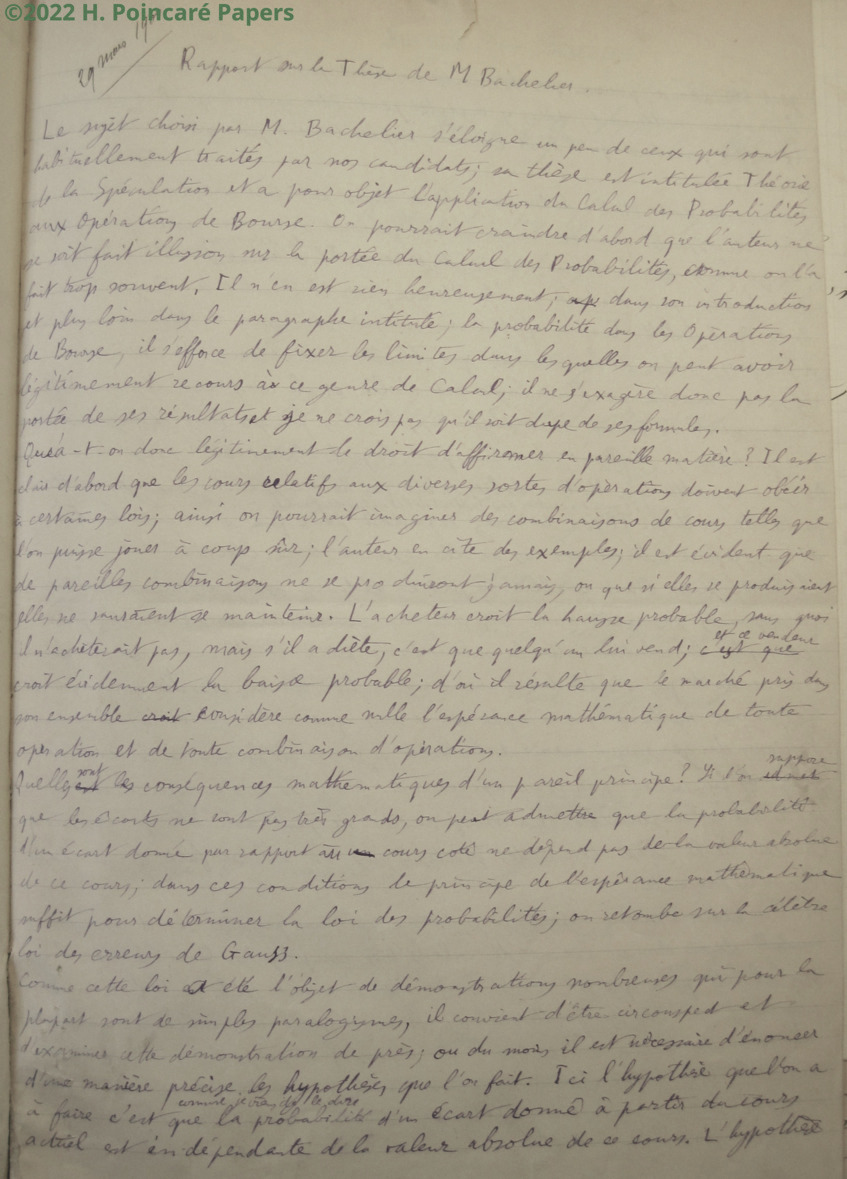 ©2022 H. Poincaré Papers
29 mars 19
Rapport sur la Thèse de M Bachelier.
Le sujet choisi par M. Bachelier s'éloigne un peu de ceux qui sont
habituellement traités par nos candidats; sa thèse est intitulée Théorie
de la Spéculation et a pour objet l'application du Calcul des Probabilités
aux Opérations de Bourse. On pourrait craindre d'abord que l'auteur ne
se soit fait illusion sur la portée du Calcul des Probabilités, comme on l'a
fait trop souvent. Il n'en est rien heureusement; dans son introduction
et plus loin dans le paragraphe intitulé; la probabilité dans les Opérations
de Bourse, il s'efforce de fixer les limites dans lesquelles on peut avoir
légitimement recours à ce genre de Calcul; il ne s'exagère donc pas la
portée de ses résultats et je ne crois pas qu'il soit dupe de ses formules.
Qu'a-t-on donc légitimement le droit d'affirmer en pareille matière? Il est
clair d'abord que les cours relatifs aux diverses sortes d'opérations doivent obéir
à certaines lois; ainsi on pourrait imaginer des combinaisons de cours telles que
l'on puisse jouer à coup sûr; l'auteur en cite des exemples; il est évident que
de pareilles combinaisons ne se produiront jamais, ou que si elles se produisaient
elles ne sauraient se maintenir. L'acheteur croit la hausse probable, sans quoi
il n'achèterait pas, mais s'il achète, c'est que quelqu'un lui vend; c'est que et ce vendeur
croit évidemment la baisse probable; d'où il résulte que le marché pris dans
son ensemble croit considère comme nulle l'espérance mathématique de toute
opération et de toute combinaison d'opérations.
Quelles sont les conséquences mathématiques d'un pareil principe? Si l'on suppose
que les écarts ne sont pas très grands, on peut admettre que la probabilité
d'un écart donné par rapport au cours coté ne dépend pas de la valeur absolue
de ce cours; dans ces conditions le principe de l'espérance mathématique
suffit pour déterminer la loi des probabilités; on retombe sur la célèbre
loi des erreurs de Gauss.
Comme cette loi a été l'objet de démonstrations nombreuses qui pour la
plupart sont de simples paralogismes, il convient d'être circonspect et
d'examiner cette démonstration de près; ou du moins il est nécessaire d'énoncer
d'une manière précise les hypothèses que l'on fait. Ici l'hypothèse que l'on a
à faire c'est comme je viens de le dire que la probabilité d'un écart donné à partir du cours
actuel est indépendante de la valeur absolue de ce cours. L'hypothèse